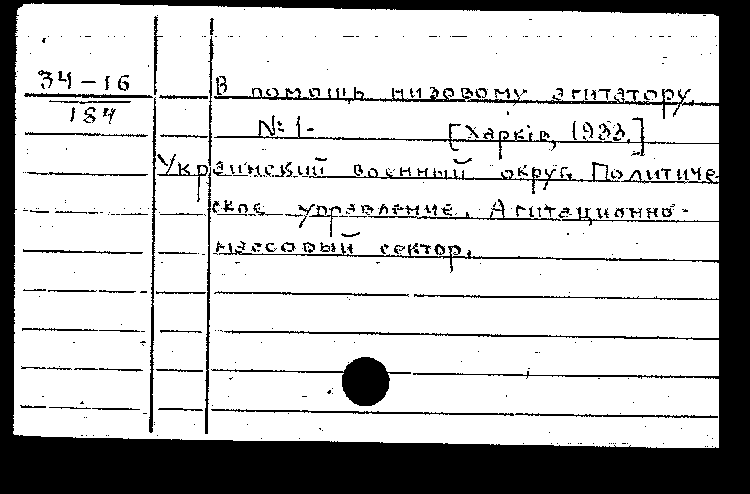 34-16
184
В помощь низовому агитатору.
№ 1- [Харкiв, 1933.]
Украинский военный округ. Политиче
ское управление. Агитационно-
массовый сектор.